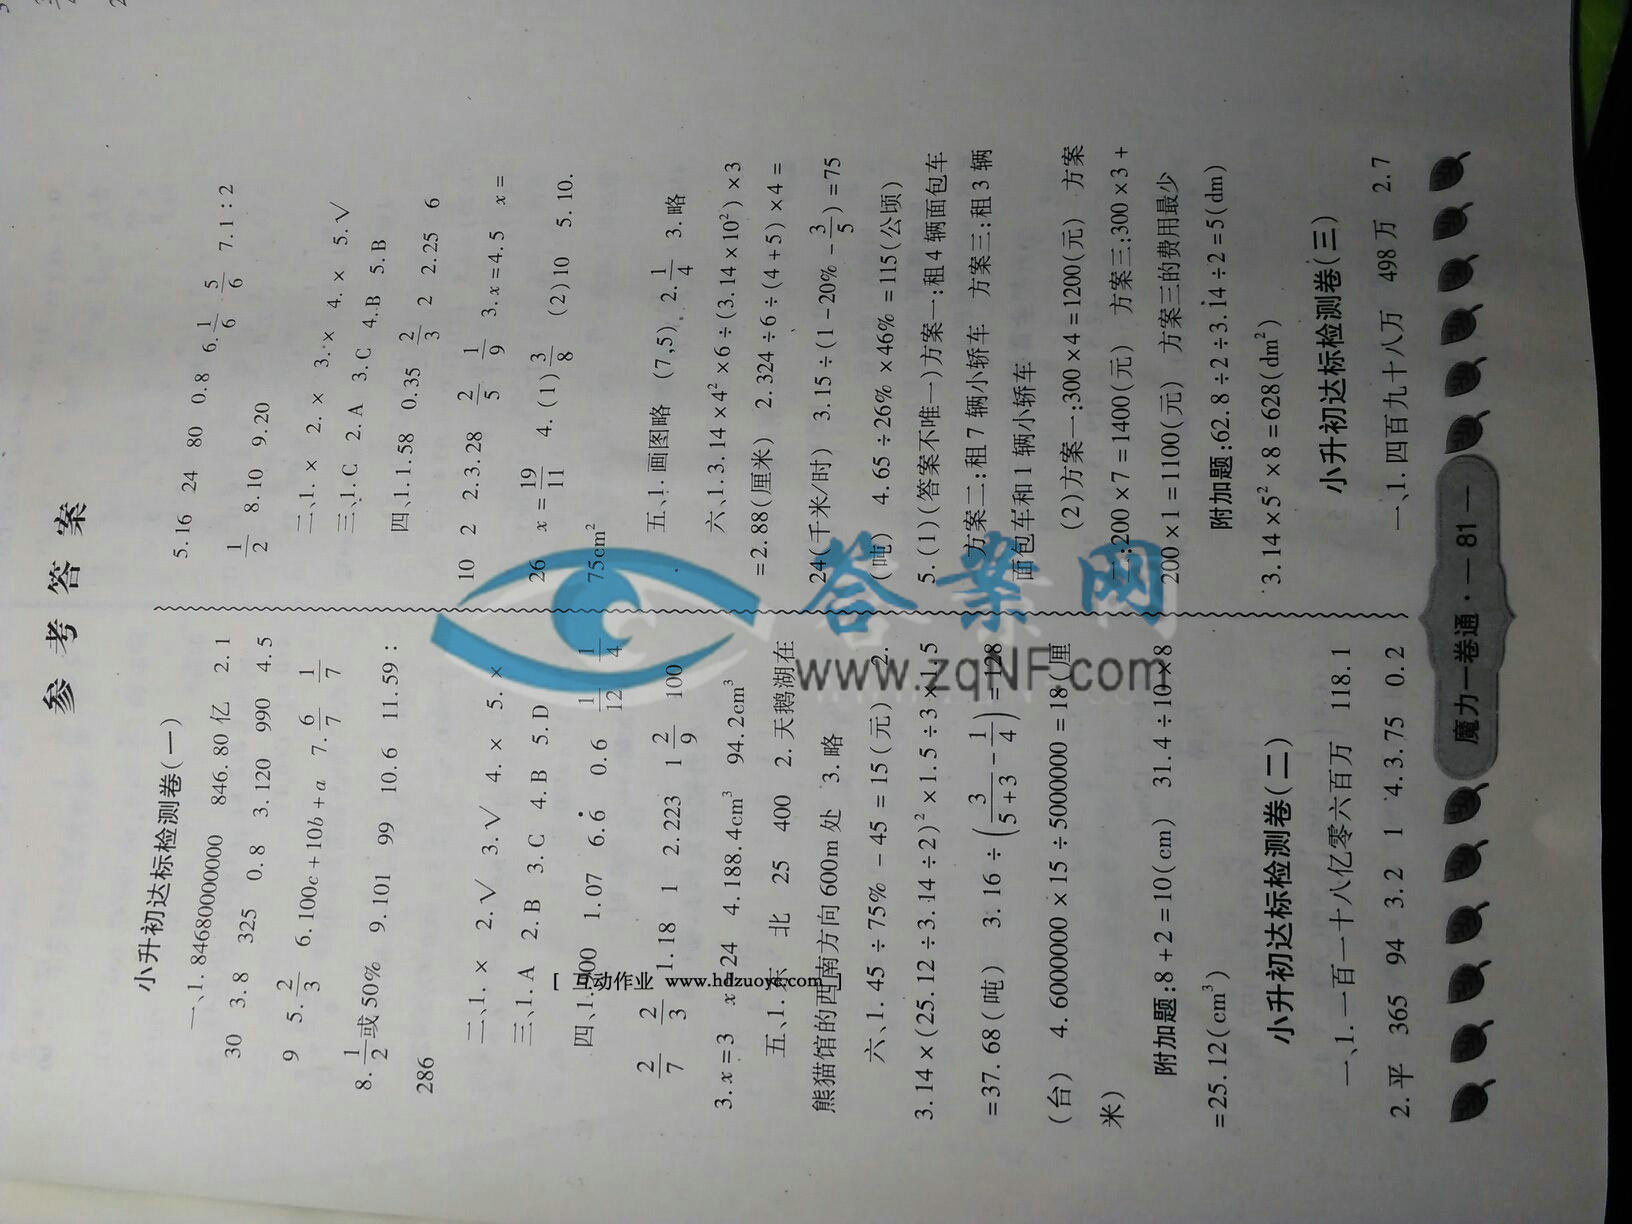 参考答案
小升初达标检测卷(一)
一、1.84680000000 846.80亿 2.1
30 3.8 325 0.8 3.120 990 4.5
9 5.2/3 6.100c+10b+a 7.6/7 1/7
8.1/2或50% 9.101 99 10.6 11.59:
286
二、1.× 2.√ 3.√ 4.× 5.×
三、1.A 2.B 3.C 4.B 5.D
四、1. 00 1.07 6.6̇ 0.6 1/12 1/4
2/7 2/3 1.18 1 2.223 1 2/9 100
3.x=3 x 24 4.188.4cm³ 94.2cm³
五、1.东 北 25 400 2.天鹅湖在
熊猫馆的西南方向600m处 3.略
六、1.45÷75%-45=15(元) 2.
3.14×(25.12÷3.14÷2)²×1.5÷3×1.5
=37.68(吨) 3.16÷(3/(5+3)-1/4)=128
(台) 4.6000000×15÷5000000=18(厘
米)
附加题:8+2=10(cm) 31.4÷10×8
=25.12(cm³)
小升初达标检测卷(二)
一、1.一百一十八亿零六百万 118.1
2.平 365 94 3.2 1 4.3.75 0.2
5.16 24 80 0.8 6.1/6 5/6 7.1:2
1/2 8.10 9.20
二、1.× 2.× 3.× 4.× 5.√
三、1.C 2.A 3.C 4.B 5.B
四、1.1.58 0.35 2/3 2 2.25 6
10 2 2.3.28 2/5 1/9 3.x=4.5 x=
26 x=19/11 4.(1)3/8 (2)10 5.10.
75cm²
五、1.画图略 (7,5) 2.1/4 3.略
六、1.3.14×4²×6÷(3.14×10²)×3
=2.88(厘米) 2.324÷6÷(4+5)×4=
24(千米/时) 3.15÷(1-20%-3/5)=75
(吨) 4.65÷26%×46%=115(公顷)
5.(1)(答案不唯一)方案一:租4辆面包车
方案二:租7辆小轿车 方案三:租3辆
面包车和1辆小轿车
(2)方案一:300×4=1200(元) 方案
二:200×7=1400(元) 方案三:300×3+
200×1=1100(元) 方案三的费用最少
附加题:62.8÷2÷3.14÷2=5(dm)
3.14×5²×8=628(dm²)
小升初达标检测卷(三)
一、1.四百九十八万 498万 2.7
魔力一卷通·—81—
答案网
www.zqNF.com
[ 互动作业 www.hdzuoye.com ]